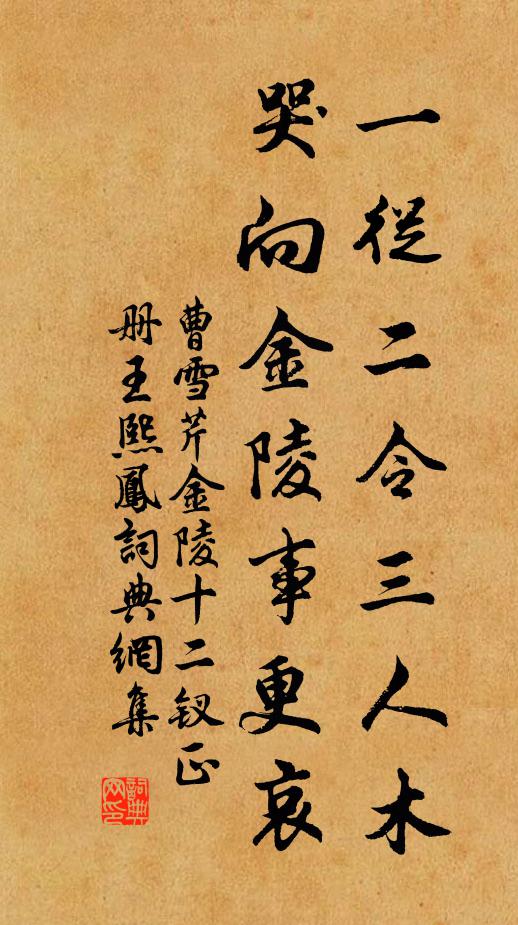 一從二令三人木
哭向金陵事更哀
曹雪芹金陵十二釵正
册王熙鳳詞典網集
詞典網印